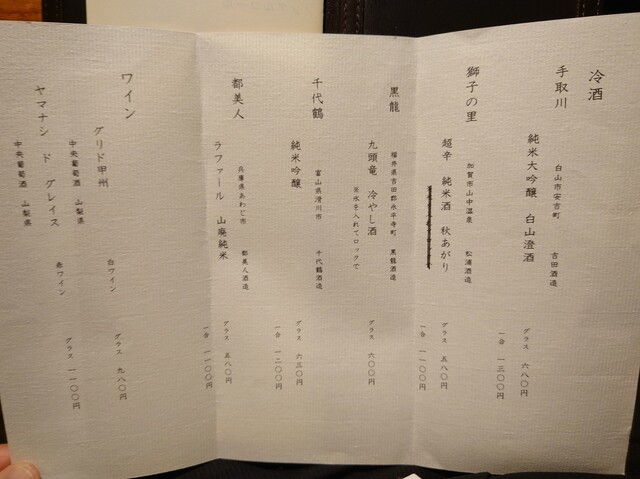 冷酒
手取川
白山市安吉町 吉田酒造
純米大吟醸 白山澄酒
グラス 六八〇円
一合 一三〇〇円
獅子の里
加賀市山中温泉 松浦酒造
超辛 純米酒 秋あがり
グラス 五八〇円
一合 一一〇〇円
黒龍
福井県吉田郡永平寺町 黒龍酒造
九頭竜 冷やし酒
グラス 六〇〇円
※氷を入れてロックで
千代鶴
富山県滑川市 千代鶴酒造
純米吟醸
グラス 六三〇円
一合 一二〇〇円
都美人
兵庫県あわじ市 都美人酒造
ラファール 山廃純米
グラス 五八〇円
一合 一一〇〇円
ワイン
グリド甲州 白ワイン
グラス 九八〇円
中央葡萄酒 山梨県
ヤマナシ ド グレイス 赤ワイン
グラス 一一〇〇円
中央葡萄酒 山梨県